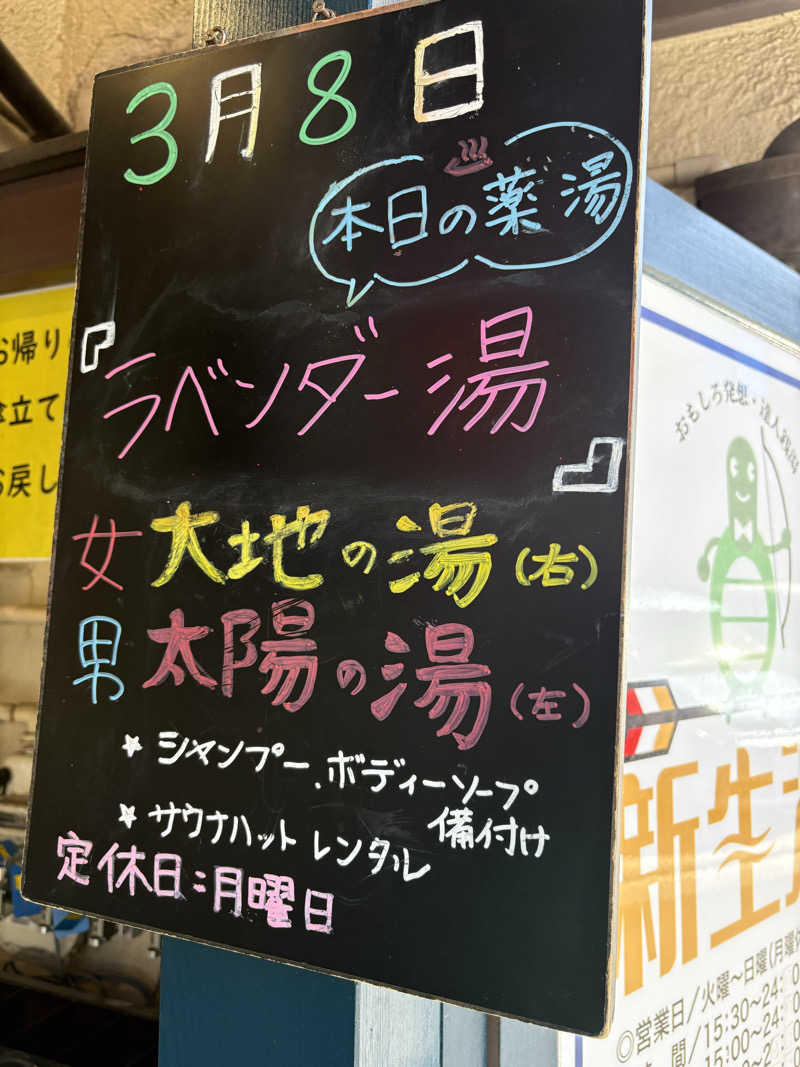 3月8日
本日の薬湯
『ラベンダー湯』
女 大地の湯(右)
男 太陽の湯(左)
☆ シャンプー、ボディーソープ
備付け
☆ サウナハット レンタル
定休日:月曜日
お帰り
傘立て
お戻し
おもしろ発想・達人銭湯
新生
◎営業日/火曜〜日曜(月曜
間/15:30〜24:
15:00〜24: